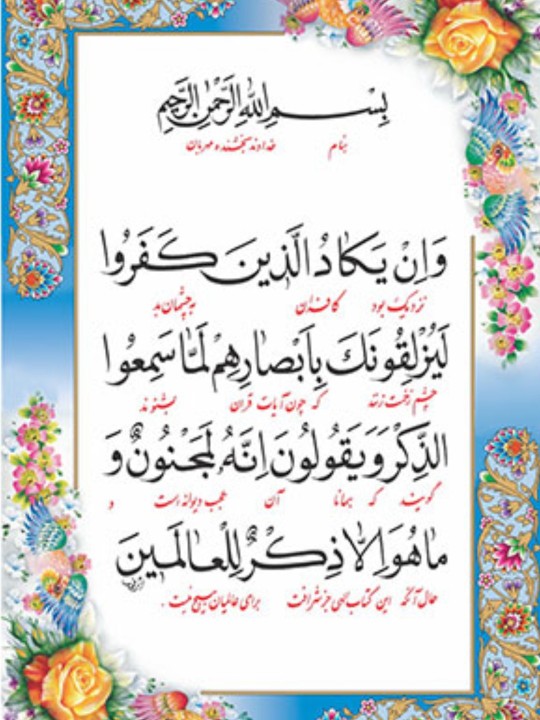 بِسْمِ اللهِ الرَّحْمٰنِ الرَّحِيمِ
بنام خداوند بخشنده مهربان
وَاِنْ يَكَادُ الَّذِينَ كَفَرُوا
نزدیک بود کافران به چشمان بد
لَيُزْلِقُونَكَ بِاَبْصَارِهِمْ لَمَّا سَمِعُوا
چشم زخمت زنند که چون آیات قران بشنوند
الذِّكْرَ وَ يَقُولُونَ اِنَّهُ لَمَجْنُونٌ وَ
گویند که همانا آن عجب دیوانه است و
مَا هُوَ اِلَّا ذِكْرٌ لِلْعَالَمِينَ
حال آنکه این کتاب الهی جز شرافت برای عالمیان هیچ نیست .